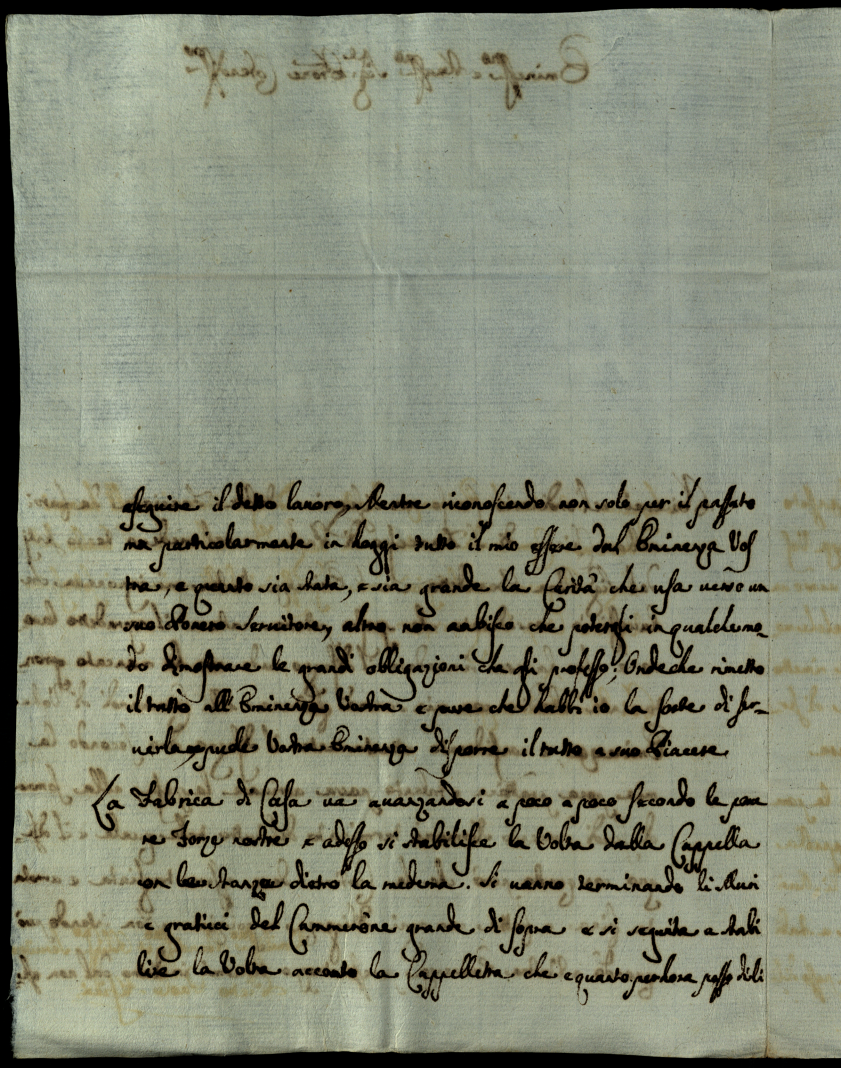 eseguire il detto lavoro, Mentre riconoscendo non solo per il passato
ma particolarmente in hoggi tutto il mio essere dal Eminenza Vos
tra, e quanto sia stata, e sia grande la Carità che usa verso un
suo Povero Servitore, altro non ambisco che poterli in qualche mo-
do dimostrare le grandi obligazioni che gli professo, Onde che rimetto
il tutto all Eminenza Vostra e pure che habbi io la sorte di ser-
virla puole Vostra Eminenza disporre il tutto a suo Piacere
La Fabrica di Casa va avanzandosi a poco a poco secondo le pove
re Forze nostre e adesso si stabilisce la Volta della Cappella
con le stanze dietro la medema. Si vanno terminando li Muri
e graticci del Cammerone grande di sopra e si seguita a stabi
lire la Volta accanto la Cappelletta che e quanto per hora posso dirli